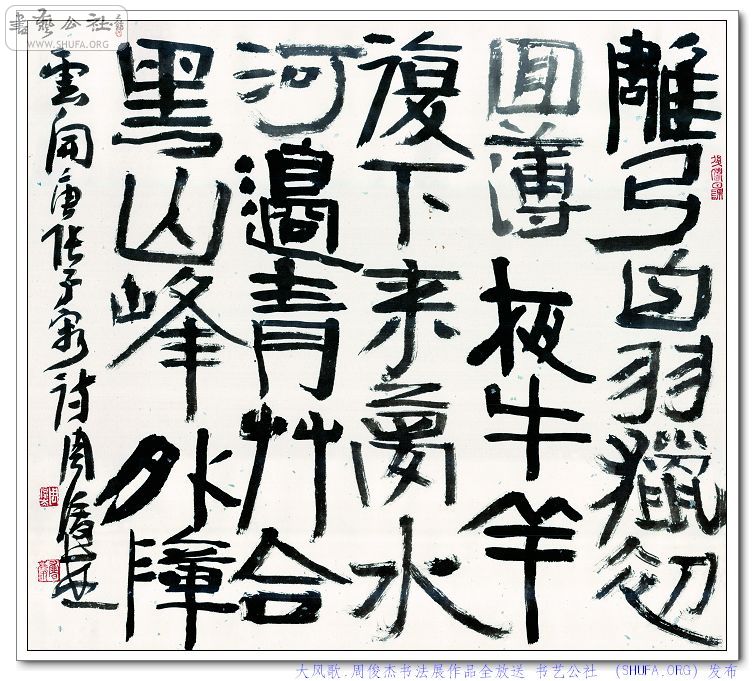 書藝公社
WWW.SHUFA.ORG
雕弓白羽獵初
回薄夜牛羊
復下来夢水
河邊青艸合
黑山峰外障
雲開唐張子容詩周俊杰
大风歌.周俊杰书法展作品全放送 书艺公社 (SHUFA.ORG) 发布